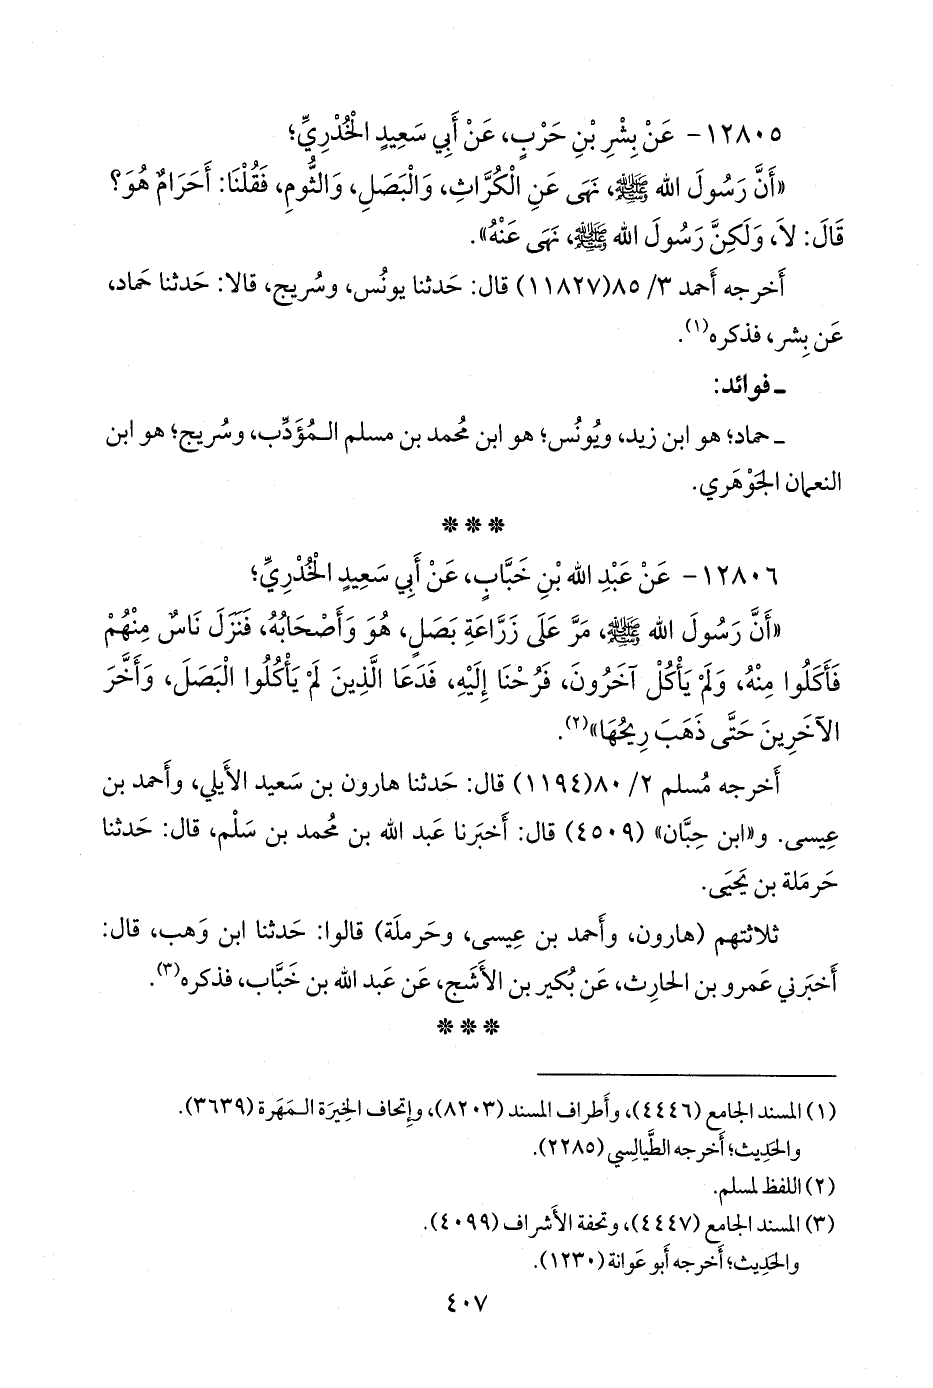 ١٢٨٠٥ - عَنْ بِشْرِ بْنِ حَرْبٍ، عَنْ أَبِي سَعِيدٍ الْخُدْرِيِّ؛
«أَنَّ رَسُولَ الله ﷺ، نَهَى عَنِ الْكُرَّاثِ، وَالْبَصَلِ، وَالثُّومِ، فَقُلْنَا: أَحَرَامٌ هُوَ؟
قَالَ: لاَ، وَلَكِنَّ رَسُولَ الله ﷺ، نَهَى عَنْهُ».
أَخرجه أَحمد ٣/ ٨٥(١١٨٢٧) قال: حَدثنا يونُس، وسُريج، قالا: حَدثنا حَماد،
عَن بِشر، فذكره(١).
ـ فوائد:
ـ حماد؛ هو ابن زيد، ويُونُس؛ هو ابن مُحمد بن مسلم الـمُؤَدِّب، وسُريج؛ هو ابن
النعمان الجَوْهَري.
***
١٢٨٠٦ - عَنْ عَبْدِ الله بْنِ خَبَّابٍ، عَنْ أَبِي سَعِيدٍ الْخُدْرِيِّ؛
«أَنَّ رَسُولَ الله ﷺ، مَرَّ عَلَى زَرَّاعَةِ بَصَلٍ، هُوَ وَأَصْحَابُهُ، فَنَزَلَ نَاسٌ مِنْهُمْ
فَأَكَلُوا مِنْهُ، وَلَمْ يَأْكُلْ آخَرُونَ، فَرُحْنَا إِلَيْهِ، فَدَعَا الَّذِينَ لَمْ يَأْكُلُوا الْبَصَلَ، وَأَخَّرَ
الآخَرِينَ حَتَّى ذَهَبَ رِيحُهَا»(٢).
أَخرجه مُسلم ٢/ ٨٠(١١٩٤) قال: حَدثنا هارون بن سَعيد الأَيلي، وأَحمد بن
عِيسى. و«ابن حِبَّان» (٤٥٠٩) قال: أَخبَرنا عَبد الله بن مُحمد بن سَلْم، قال: حَدثنا
حَرمَلة بن يَحيَى.
ثلاثتهم (هارون، وأَحمد بن عِيسى، وحَرملَة) قالوا: حَدثنا ابن وَهب، قال:
أَخبَرني عَمرو بن الحارِث، عَن بُكير بن الأَشَج، عَن عَبد الله بن خَبَّاب، فذكره(٣).
***
(١) المسند الجامع (٤٤٤٦)، وأطراف المسند (٨٢٠٣)، وإتحاف الخِيرَة الـمَهَرة (٣٦٣٩).
والحَدِيث؛ أَخرجه الطَّيالِسي (٢٢٨٥).
(٢) اللفظ لمسلم.
(٣) المسند الجامع (٤٤٤٧)، وتحفة الأَشراف (٤٠٩٩).
والحَدِيث؛ أَخرجه أَبو عَوانة (١٢٣٠).
٤٠٧